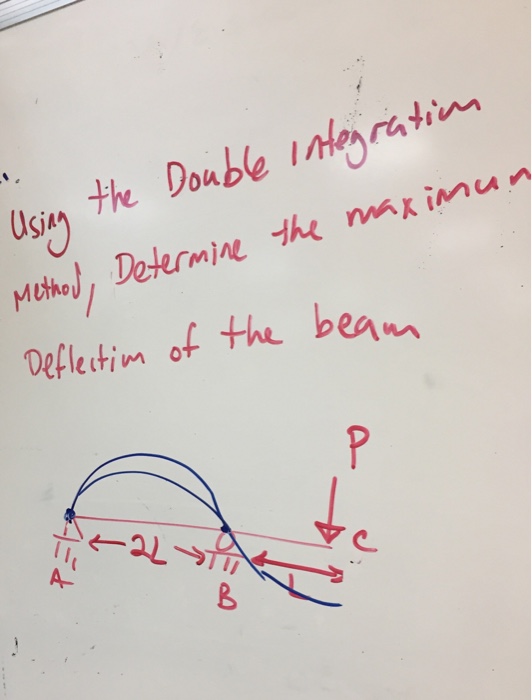 Using the Double Integration
Method, Determine the maximum
Deflection of the beam
P
C
2L
L
A
B